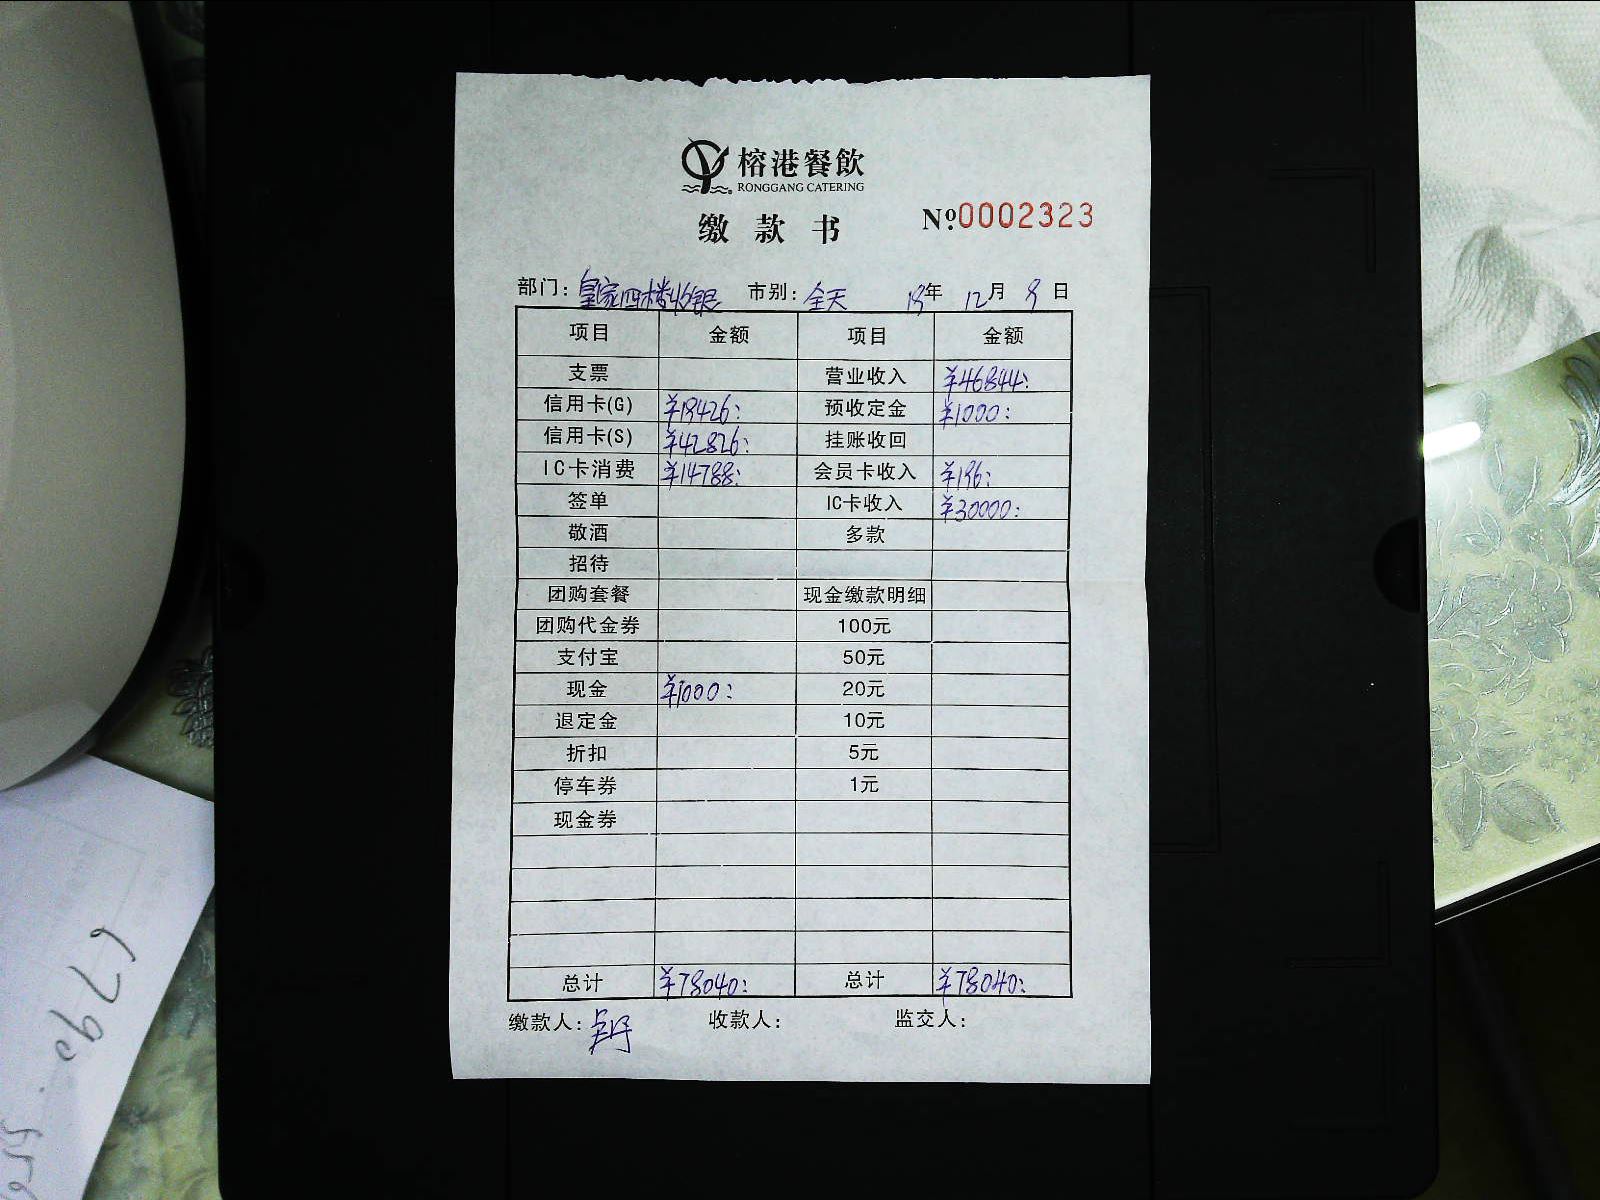 榕港餐飲
RONGGANG CATERING
缴款书 №:0002323
部门: 皇家四楼收银 市别: 全天 19年 12月 9日
项目 金额 项目 金额
支票 营业收入 ¥46844:
信用卡(G) ¥19426: 预收定金 ¥1000:
信用卡(S) ¥42826: 挂账收回
IC卡消费 ¥14788: 会员卡收入 ¥196:
签单 IC卡收入 ¥30000:
敬酒 多款
招待
团购套餐 现金缴款明细
团购代金券 100元
支付宝 50元
现金 ¥1000: 20元
退定金 10元
折扣 5元
停车券 1元
现金券
总计 ¥78040: 总计 ¥78040:
缴款人: 收款人: 监交人:
6790.